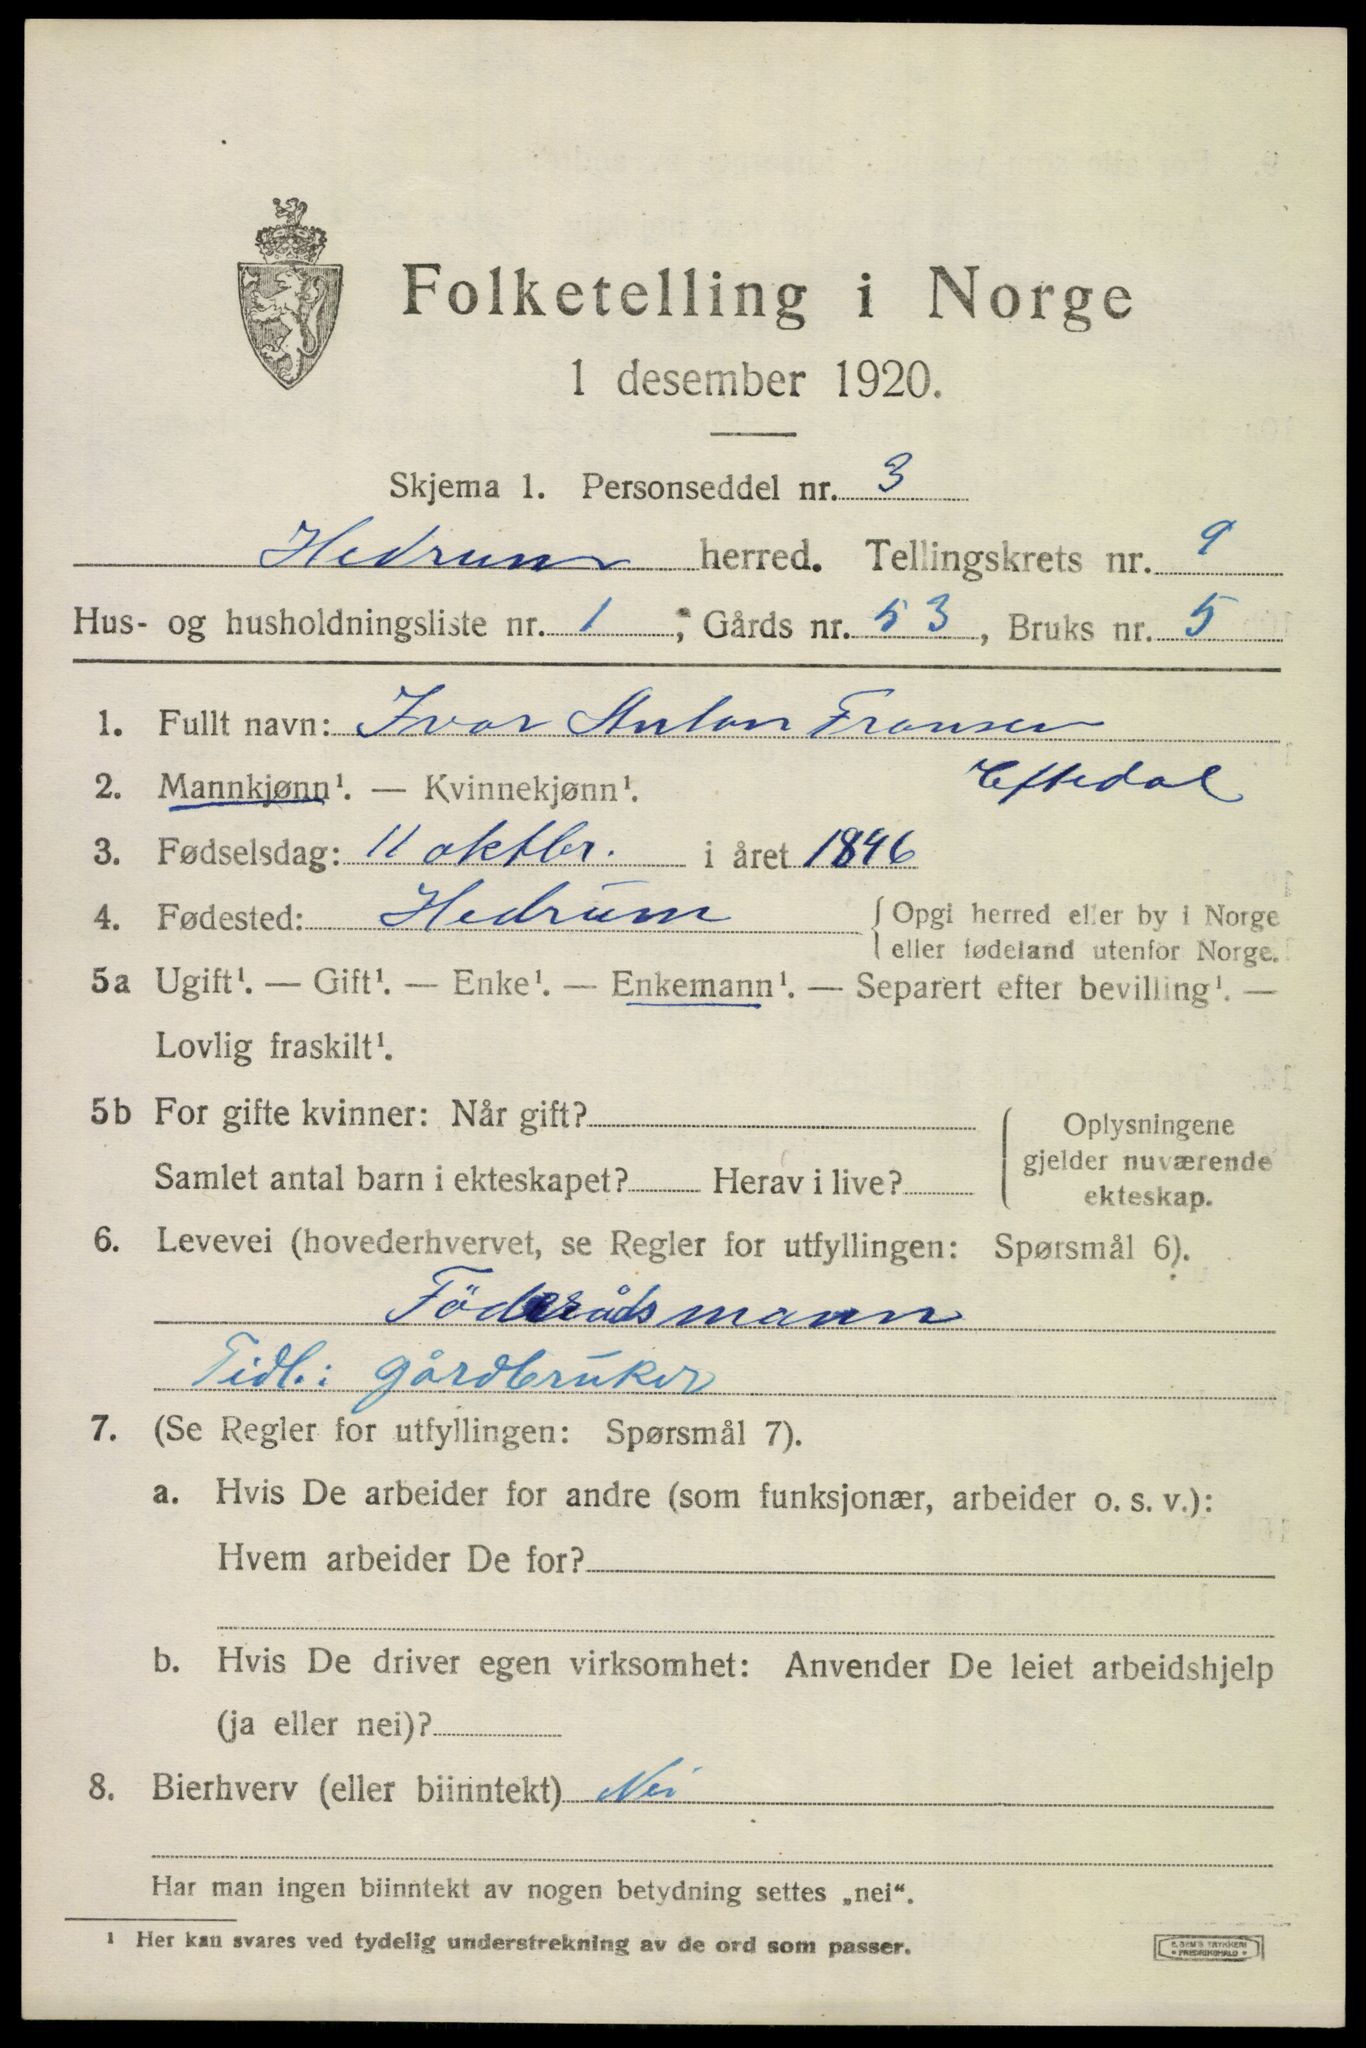 Folketelling i Norge
1 desember 1920.
Skjema 1. Personseddel nr. 3
Hedrum herred. Tellingskrets nr. 9
Hus- og husholdningsliste nr. 1; Gårds nr. 53, Bruks nr. 5
1. Fullt navn: Ivar Anton Fransen
Eftedal
2. Mannkjønn¹. — Kvinnekjønn¹.
3. Fødselsdag: 11 oktbr. i året 1846
4. Fødested: Hedrum { Opgi herred eller by i Norge
eller fødeland utenfor Norge.
5a Ugift¹. — Gift¹. — Enke¹. — Enkemann¹. — Separert efter bevilling¹. —
Lovlig fraskilt¹.
5b For gifte kvinner: Når gift? { Oplysningene
gjelder nuværende
Samlet antal barn i ekteskapet? Herav i live? ekteskap.
6. Levevei (hovederhvervet, se Regler for utfyllingen: Spørsmål 6).
Föderådsmann
Tidl.: gårdbruker
7. (Se Regler for utfyllingen: Spørsmål 7).
a. Hvis De arbeider for andre (som funksjonær, arbeider o. s. v.):
Hvem arbeider De for?
b. Hvis De driver egen virksomhet: Anvender De leiet arbeidshjelp
(ja eller nei)?
8. Bierhverv (eller biinntekt) Nei
Har man ingen biinntekt av nogen betydning settes „nei“.
¹ Her kan svares ved tydelig understrekning av de ord som passer.
E. SEM'S TRYKKERI
FREDRIKSHALD